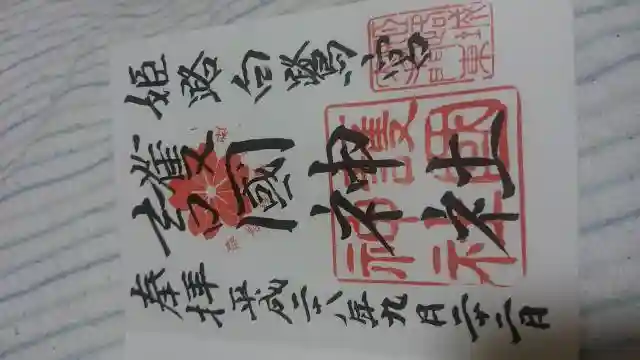 姫路白鷺宮
護國神社
奉拝 平成二八年九月二十二日
護國神社